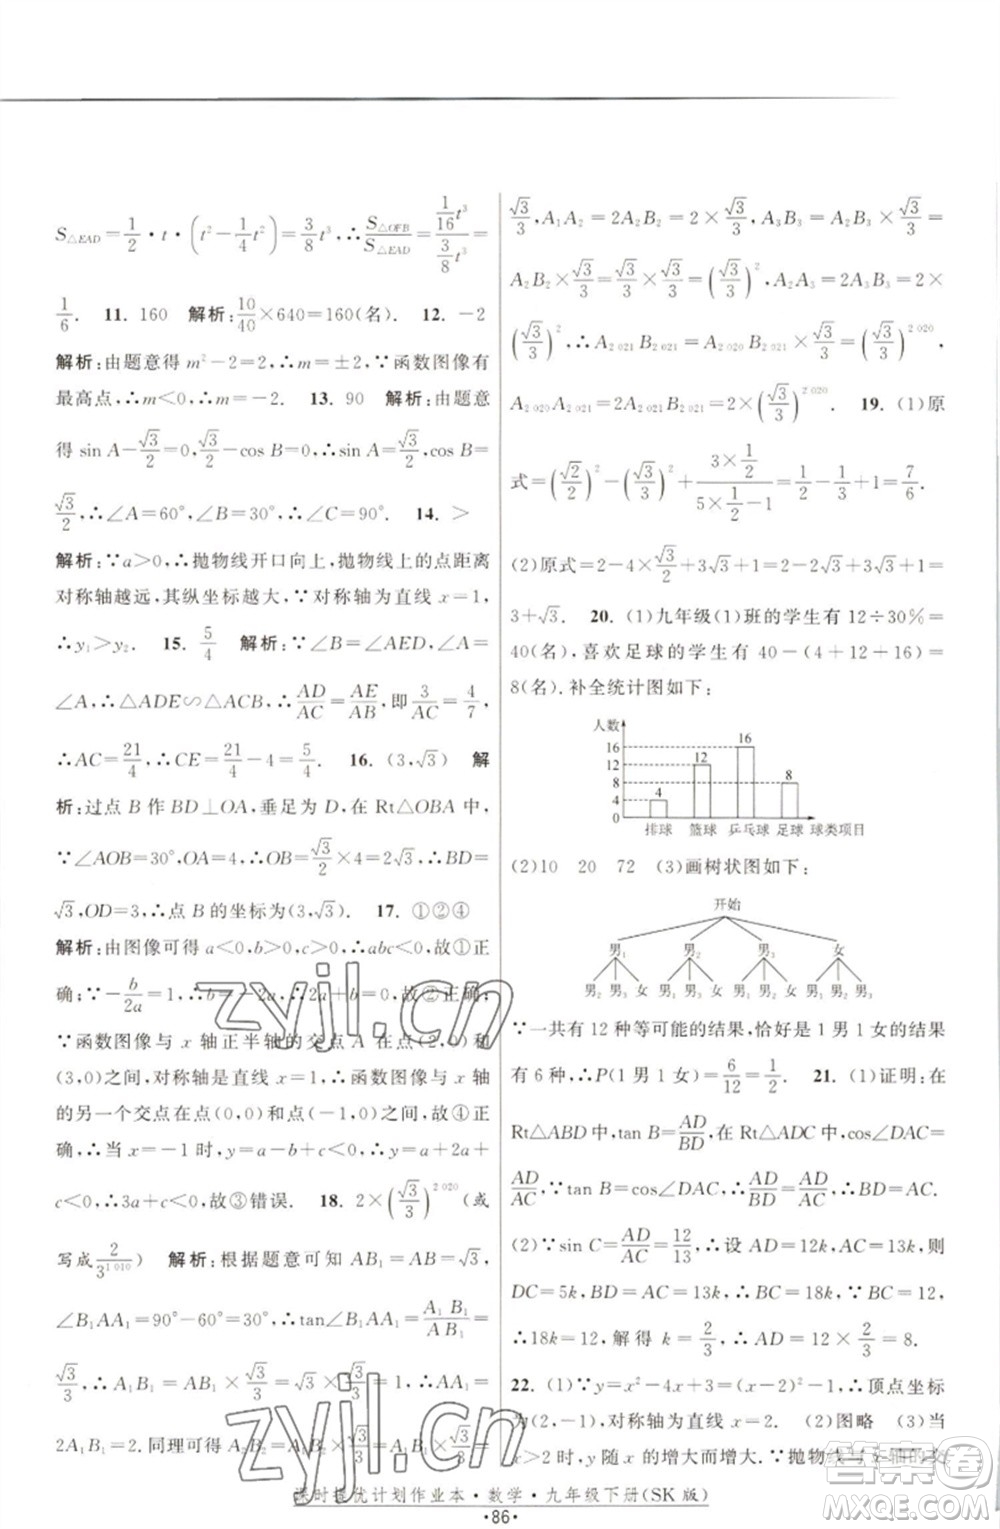 S△EAD=1/2·t·(t²-1/4t²)=3/8t³,∴S△OFB/S△EAD=(1/16t³)/(3/8t³)=
1/6. 11. 160 解析:10/40×640=160(名). 12. -2
解析:由题意得 m²-2=2,∴m=±2.∵函数图像有
最高点,∴m<0,∴m=-2. 13. 90 解析:由题意
得 sin A-√3/2=0,√3/2-cos B=0,∴sin A=√3/2,cos B=
√3/2,∴∠A=60°,∠B=30°,∴∠C=90°. 14. >
解析:∵a>0,∴抛物线开口向上,抛物线上的点距离
对称轴越远,其纵坐标越大,∵对称轴为直线 x=1,
∴y₁>y₂. 15. 5/4 解析:∵∠B=∠AED,∠A=
∠A,∴△ADE∽△ACB,∴AD/AC=AE/AB,即3/AC=4/7,
∴AC=21/4,∴CE=21/4-4=5/4. 16. (3,√3) 解
析:过点 B 作 BD⊥OA,垂足为 D.在 Rt△OBA 中,
∵∠AOB=30°,OA=4,∴OB=√3/2×4=2√3,∴BD=
√3,OD=3,∴点 B 的坐标为(3,√3). 17. ①②④
解析:由图像可得 a<0,b>0,c>0,∴abc<0,故①正
确;∵-b/2a=1,∴b=-2a,∴2a+b=0,故②正确;
∵函数图像与 x 轴正半轴的交点 A 在点(2,0)和
(3,0)之间,对称轴是直线 x=1,∴函数图像与 x 轴
的另一个交点在点(0,0)和点(-1,0)之间,故④正
确;∴当 x=-1 时,y=a-b+c<0,∴y=a+2a+
c<0,∴3a+c<0,故③错误. 18. 2×(√3/3)^2 020(或
写成2/3^1 010) 解析:根据题意可知 AB₁=AB=√3,
∠B₁AA₁=90°-60°=30°,∴tan∠B₁AA₁=A₁B₁/AB₁=
√3/3,∴A₁B₁=AB₁×√3/3=√3×√3/3=1,∴AA₁=
2A₁B₁=2.同理可得 A₂B₂=A₁B₂×√3/3=A₁B₁×
√3/3,A₁A₂=2A₂B₂=2×√3/3,A₃B₃=A₂B₃×√3/3=
A₂B₂×√3/3=√3/3×√3/3=(√3/3)²,A₂A₃=2A₃B₃=2×
(√3/3)²,∴A₂ ₀₂₁B₂ ₀₂₁=A₂ ₀₂₀B₂ ₀₂₁×√3/3=(√3/3)^2 020,
A₂ ₀₂₀A₂ ₀₂₁=2A₂ ₀₂₁B₂ ₀₂₁=2×(√3/3)^2 020. 19. (1)原
式=(√2/2)²-(√3/3)²+(3×1/2)/(5×1/2-1)=1/2-1/3+1=7/6.
(2)原式=2-4×√3/2+3√3+1=2-2√3+3√3+1=
3+√3. 20. (1)九年级(1)班的学生有 12÷30%=
40(名),喜欢足球的学生有 40-(4+12+16)=
8(名).补全统计图如下:
人数
16
12
8
4
0
4
12
16
8
排球 篮球 乒乓球 足球 球类项目
(2)10 20 72 (3)画树状图如下:
开始
男₁ 男₂ 男₃ 女
男₂ 男₃ 女 男₁ 男₃ 女 男₁ 男₂ 女 男₁ 男₂ 男₃
∵一共有 12 种等可能的结果,恰好是 1 男 1 女的结果
有 6 种,∴P(1 男 1 女)=6/12=1/2. 21. (1)证明:在
Rt△ABD 中,tan B=AD/BD,在 Rt△ADC 中,cos∠DAC=
AD/AC,∵tan B=cos∠DAC,∴AD/BD=AD/AC,∴BD=AC.
(2)∵sin C=AD/AC=12/13,∴设 AD=12k,AC=13k,则
DC=5k,BD=AC=13k,∴BC=18k.∵BC=12,
∴18k=12,解得 k=2/3,∴AD=12×2/3=8.
22. (1)∵y=x²-4x+3=(x-2)²-1,∴顶点坐标
为(2,-1),对称轴为直线 x=2. (2)图略 (3)当
x>2 时,y 随 x 的增大而增大. ∵抛物线与 x 轴的交
课时提优计划作业本·数学·九年级下册(SK 版)
·86·
zyjl.cn
zyjl.cn
答案圈